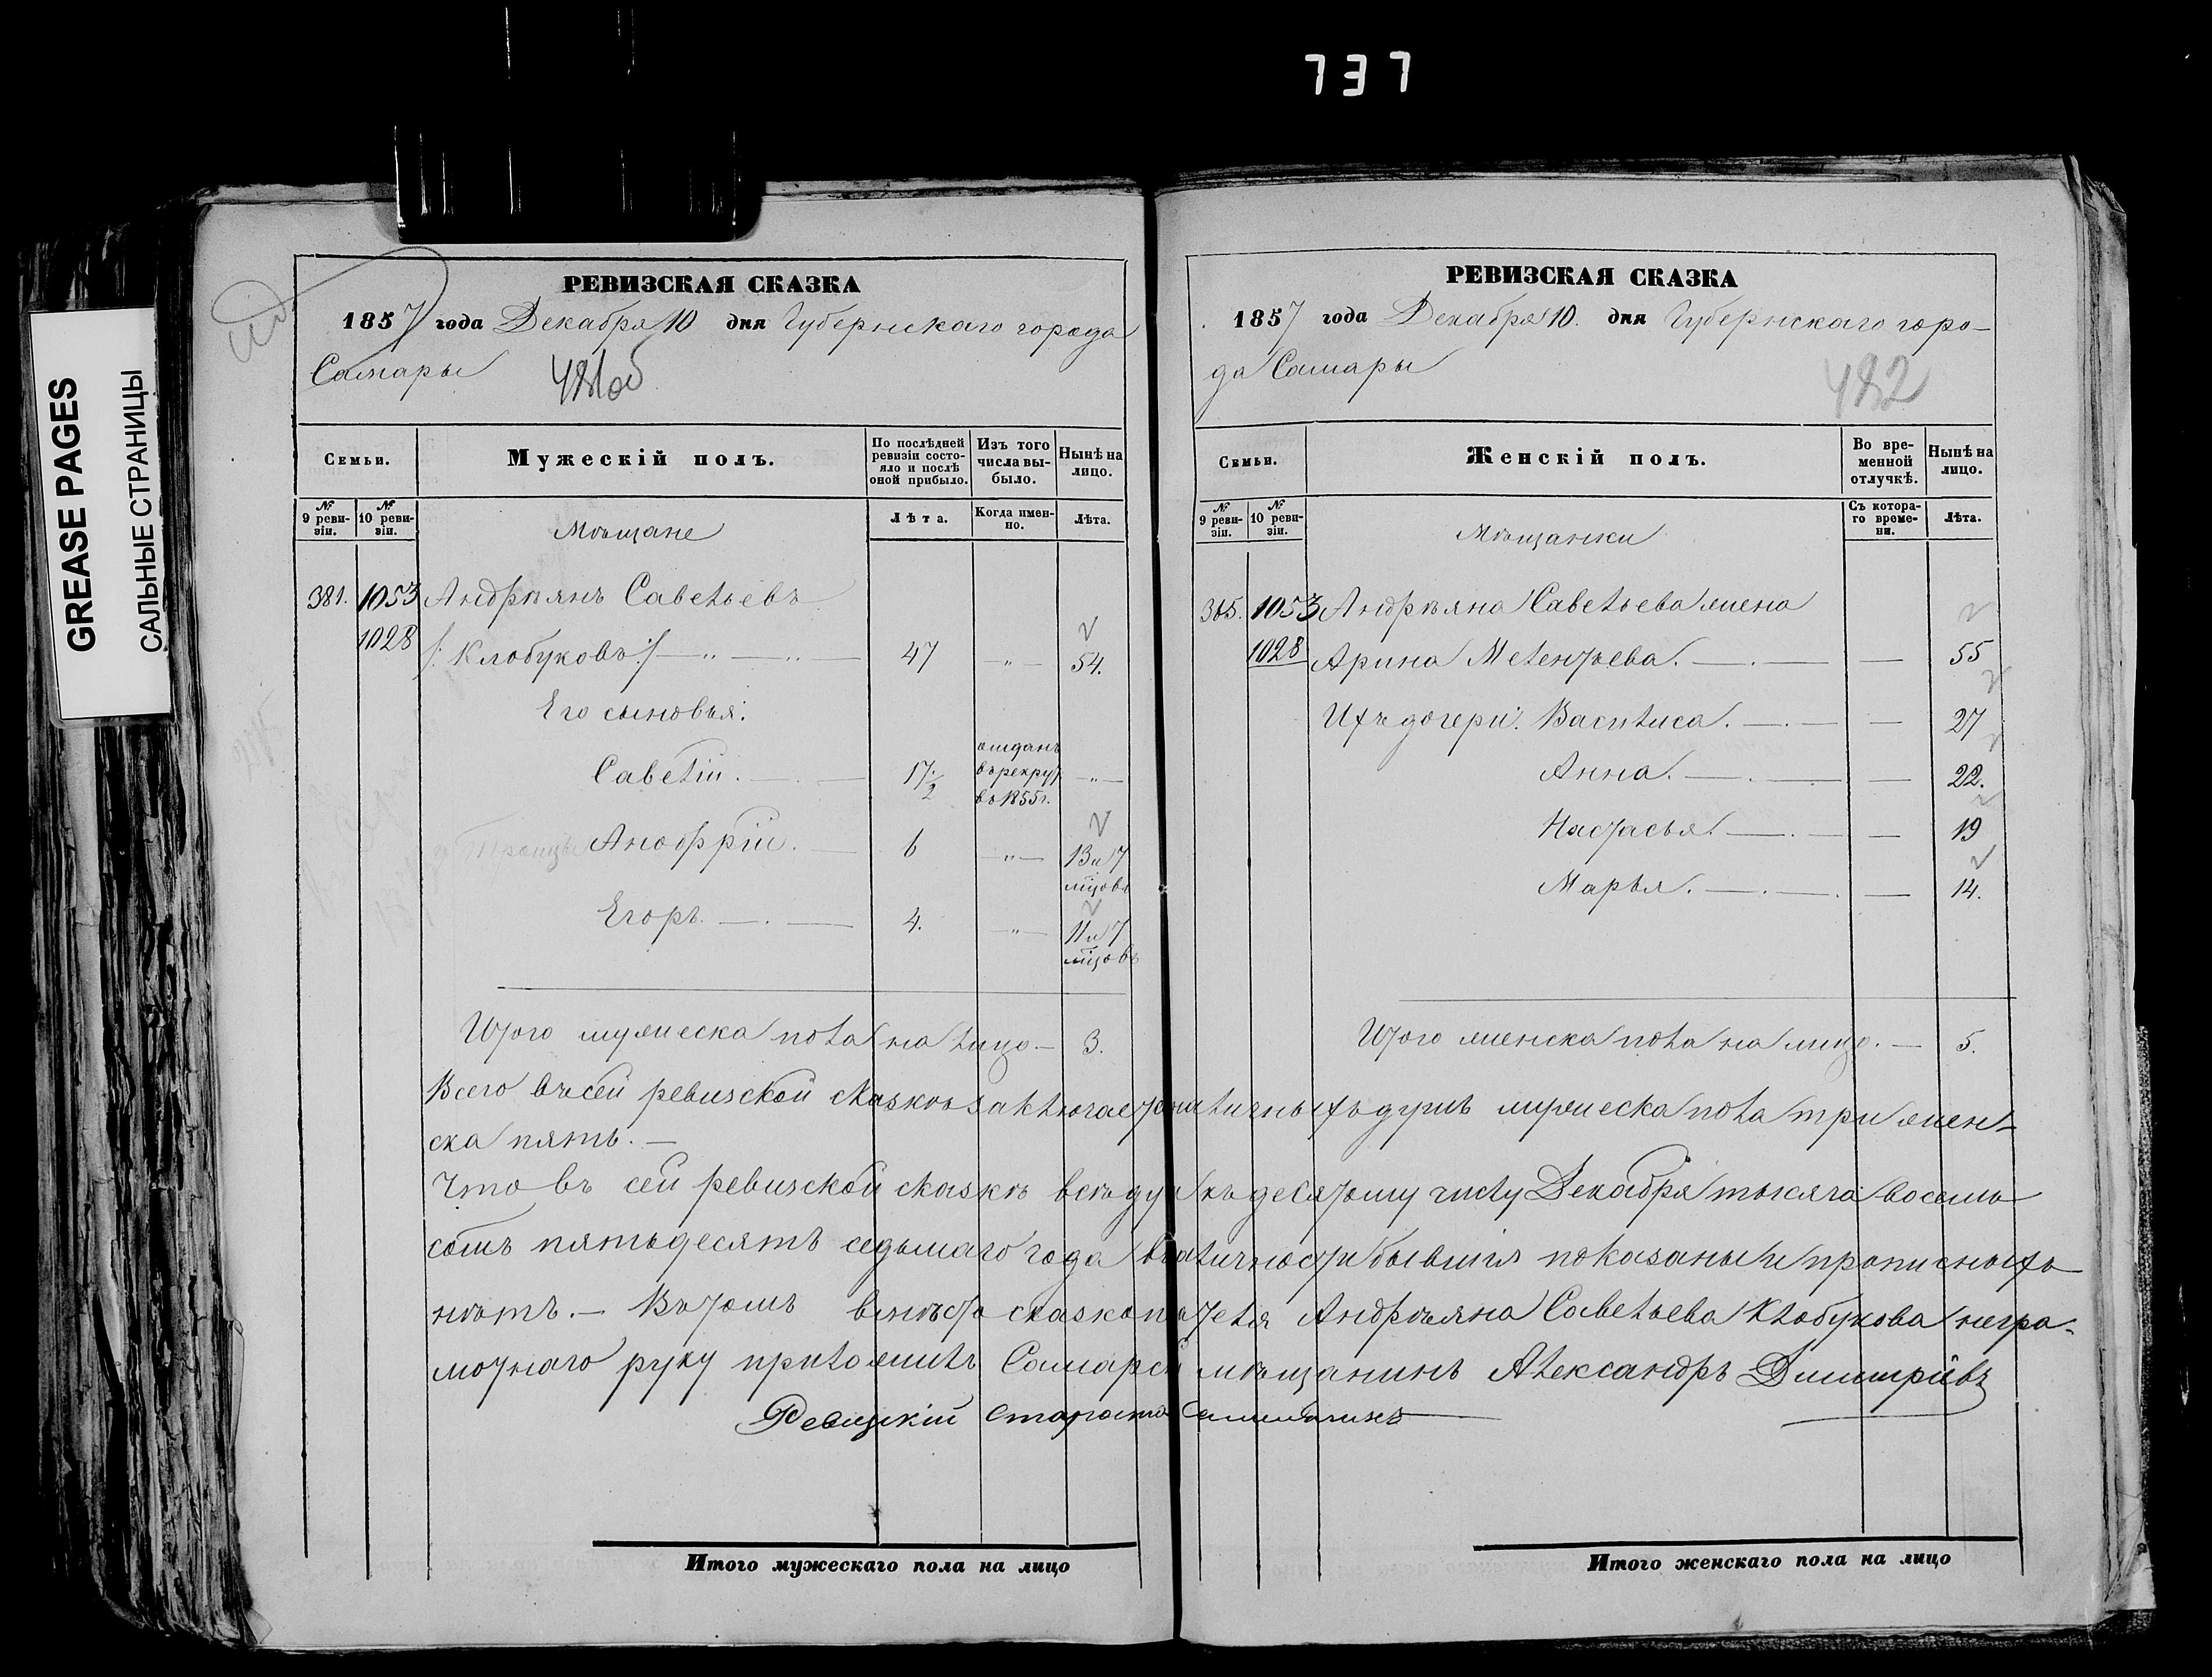 737
GREASE PAGES
САЛЬНЫЕ СТРАНИЦЫ
РЕВИЗСКАЯ СКАЗКА
1857 года Декабря 10 дня Губернскаго города
Самары
481об
Семьи.
Мужескій полъ.
По послѣдней ревизіи состояло и послѣ оной прибыло.
Изъ того числа выбыло.
Нынѣ на лицо.
№ 9 ревизіи.
№ 10 ревизіи.
Мѣщане
Лѣта.
Когда именно.
Лѣта.
381. 1053 Андрѣянъ Савельевъ
1028 /: Клобуковъ :/ — „ — „ — 47 — „ — 54.
Его сыновья:
Савелій. — 17 1/2 отданъ въ рекруты въ 1855 г. — „ —
Анофрій. — 6 — „ — 13 и 7 мѣцовъ
Егоръ. — . — 4. — „ — 11 и 7 мѣцовъ
Итого мужеска пола на лицо — 3.
РЕВИЗСКАЯ СКАЗКА
1857 года Декабря 10. дня Губернскаго горо-
да Самары
482
Семьи.
Женскій полъ.
Во временной отлучкѣ.
Нынѣ на лицо.
№ 9 ревизіи.
№ 10 ревизіи.
Мѣщанки
Съ котораго времени.
Лѣта.
1053 Андрѣяна Савельева жена
1028 Арина Мелентьева. — . — — 55
Ихъ дочери: Василиса. — . — — 27
Анна. — . — — 22.
Настасья. — . — — 19
Марья. — . — . — 14.
Итого женска пола на лицо. — 5.
Всего въ сей ревизской сказкѣ заключается наличныхъ душъ мужеска пола три жен-
ска пять. —
Что въ сей ревизской сказкѣ всѣ души къ десятому числу Декабря тысяча восемь
сотъ пятьдесятъ седьмаго года въ наличности бывшія показаны и прописныхъ
нѣтъ. — Въ томъ вмѣсто сказкоподателя Андрѣяна Савельева Клобукова негра-
мотнаго руку приложилъ Самарскій мѣщанинъ Александръ Димитріевъ
Ревизскій Староста
Итого мужескаго пола на лицо
Итого женскаго пола на лицо